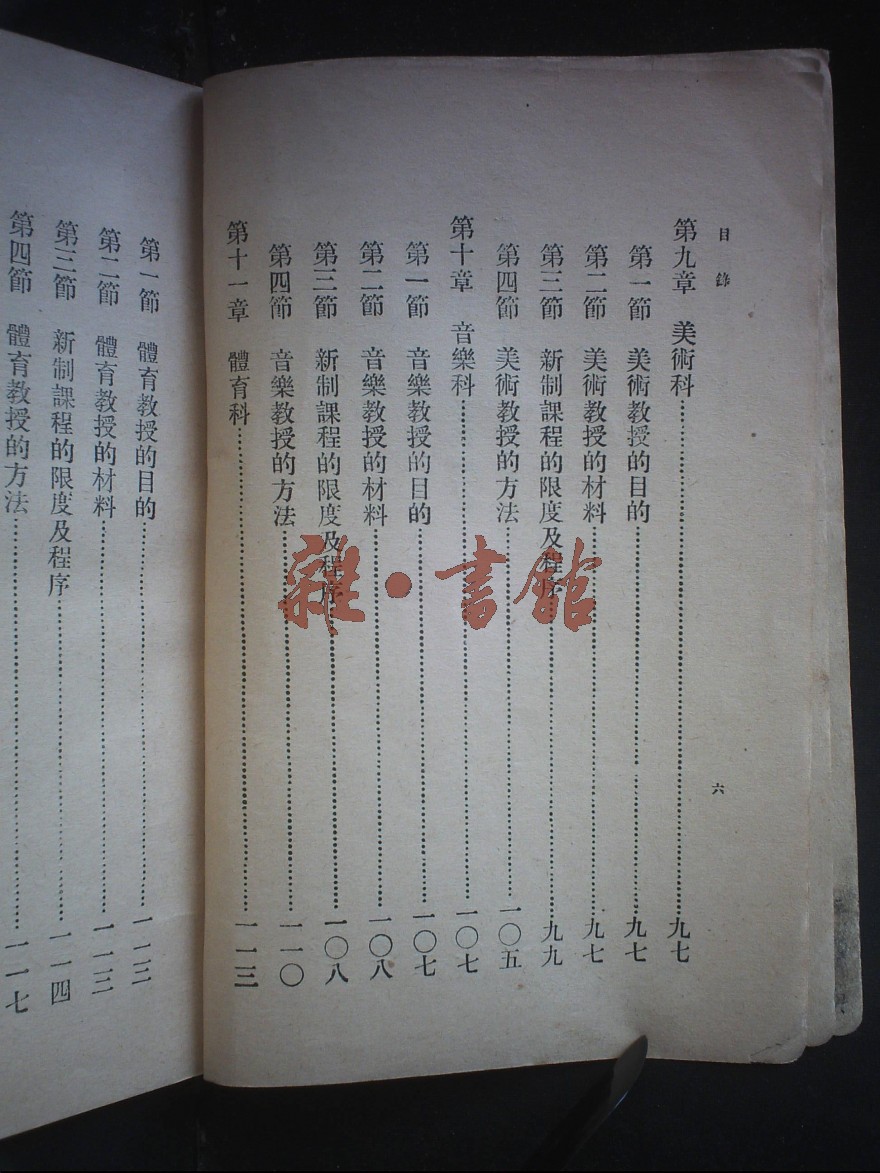 目錄
六
第九章 美術科……九七
第一節 美術教授的目的……九七
第二節 美術教授的材料……九七
第三節 新制課程的限度及程序……九九
第四節 美術教授的方法……一〇五
第十章 音樂科……一〇七
第一節 音樂教授的目的……一〇七
第二節 音樂教授的材料……一〇八
第三節 新制課程的限度及程序……一〇八
第四節 音樂教授的方法……一一〇
第十一章 體育科……一一三
第一節 體育教授的目的……一一三
第二節 體育教授的材料……一一三
第三節 新制課程的限度及程序……一一四
第四節 體育教授的方法……一一七
雜·書館